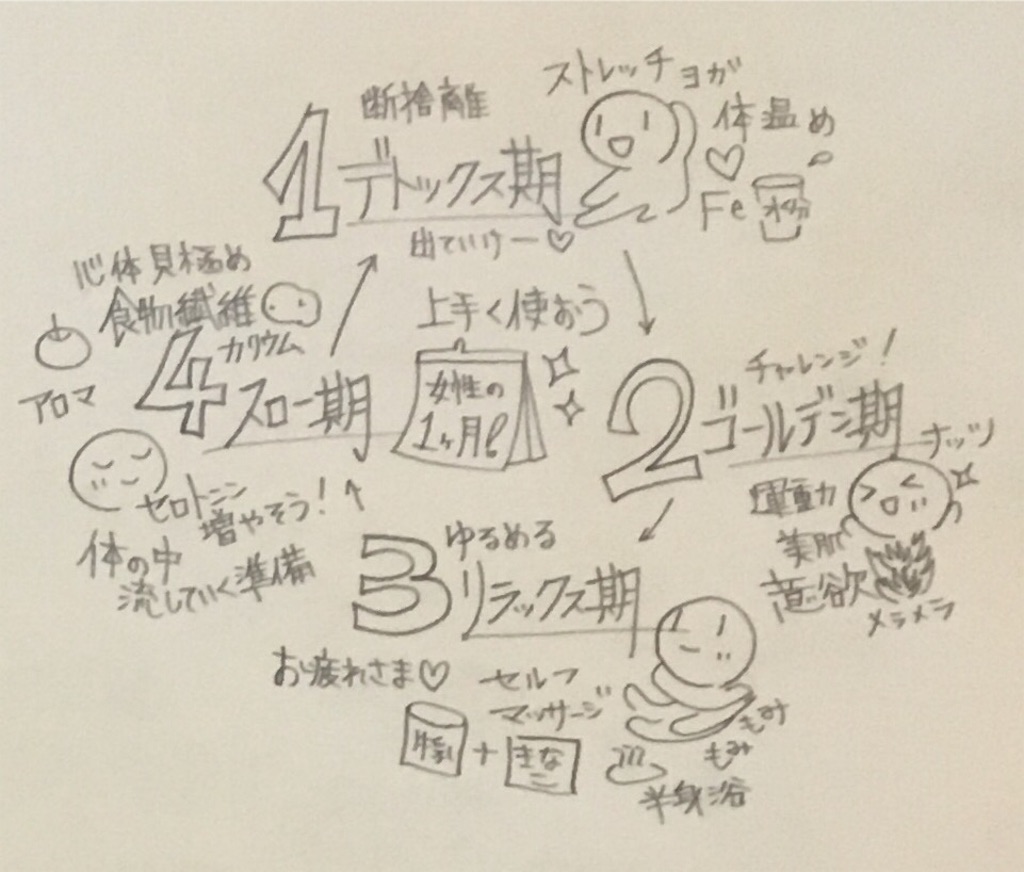 断捨離
1 デトックス期
出ていけー♡
ストレッチ ヨガ
体温め
♡
Fe
上手く使おう
女性の
1ヶ月
チャレンジ!
2 ゴールデン期
ナッツ
運動
美肌
意欲
メラメラ
ゆるめる
3 リラックス期
お疲れさま♡
セルフ
マッサージ
もみ
もみ
牛乳 + きな
こ
半身浴
心体見極め
食物繊維
カリウム
4 スロー期
アロマ
セロトニン
増やそう!
体の中
流していく準備